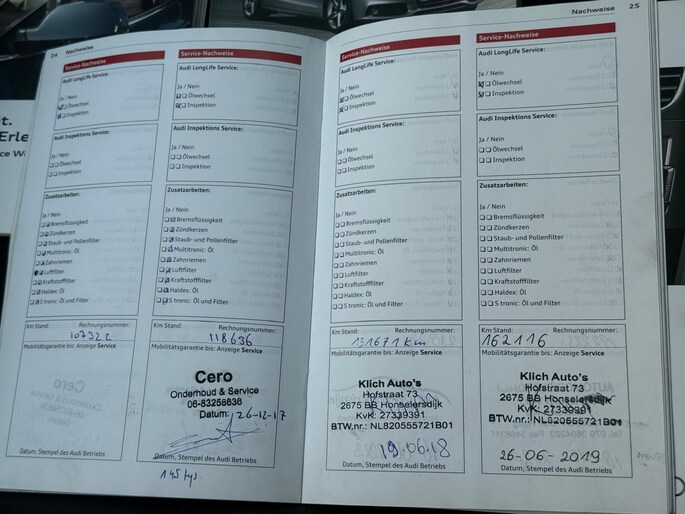 24 Nachweise
Service-Nachweise
Audi LongLife Service:
Ja / Nein
Ölwechsel
Inspektion
Audi Inspektions Service:
Ja / Nein
Ölwechsel
Inspektion
Zusatzarbeiten:
Ja / Nein
Bremsflüssigkeit
Zündkerzen
Staub- und Pollenfilter
Multitronic: Öl
Zahnriemen
Luftfilter
Kraftstofffilter
Haldex: Öl
S tronic: Öl und Filter
Km Stand: Rechnungsnummer:
107322
Mobilitätsgarantie bis: Anzeige Service
Datum, Stempel des Audi Betriebs
Service-Nachweise
Audi LongLife Service:
Ja / Nein
Ölwechsel
Inspektion
Audi Inspektions Service:
Ja / Nein
Ölwechsel
Inspektion
Zusatzarbeiten:
Ja / Nein
Bremsflüssigkeit
Zündkerzen
Staub- und Pollenfilter
Multitronic: Öl
Zahnriemen
Luftfilter
Kraftstofffilter
Haldex: Öl
S tronic: Öl und Filter
Km Stand: Rechnungsnummer:
118636
Mobilitätsgarantie bis: Anzeige Service
Cero
Onderhoud & Service
06-83258838
Datum: 26-12-17
Datum, Stempel des Audi Betriebs
Nachweise 25
Service-Nachweise
Audi LongLife Service:
Ja / Nein
Ölwechsel
Inspektion
Audi Inspektions Service:
Ja / Nein
Ölwechsel
Inspektion
Zusatzarbeiten:
Ja / Nein
Bremsflüssigkeit
Zündkerzen
Staub- und Pollenfilter
Multitronic: Öl
Zahnriemen
Luftfilter
Kraftstofffilter
Haldex: Öl
S tronic: Öl und Filter
Km Stand: Rechnungsnummer:
131671 Km
Mobilitätsgarantie bis: Anzeige Service
Klich Auto's
Hofstraat 73
2675 BB Honselersdijk
KvK: 27339391
BTW.nr.: NL820555721B01
19-06-18
Datum, Stempel des Audi Betriebs
Service-Nachweise
Audi LongLife Service:
Ja / Nein
Ölwechsel
Inspektion
Audi Inspektions Service:
Ja / Nein
Ölwechsel
Inspektion
Zusatzarbeiten:
Ja / Nein
Bremsflüssigkeit
Zündkerzen
Staub- und Pollenfilter
Multitronic: Öl
Zahnriemen
Luftfilter
Kraftstofffilter
Haldex: Öl
S tronic: Öl und Filter
Km Stand: Rechnungsnummer:
162116
Mobilitätsgarantie bis: Anzeige Service
Klich Auto's
Hofstraat 73
2675 BB Honselersdijk
KvK: 27339391
BTW.nr.: NL820555721B01
26-06-2019
Datum, Stempel des Audi Betriebs